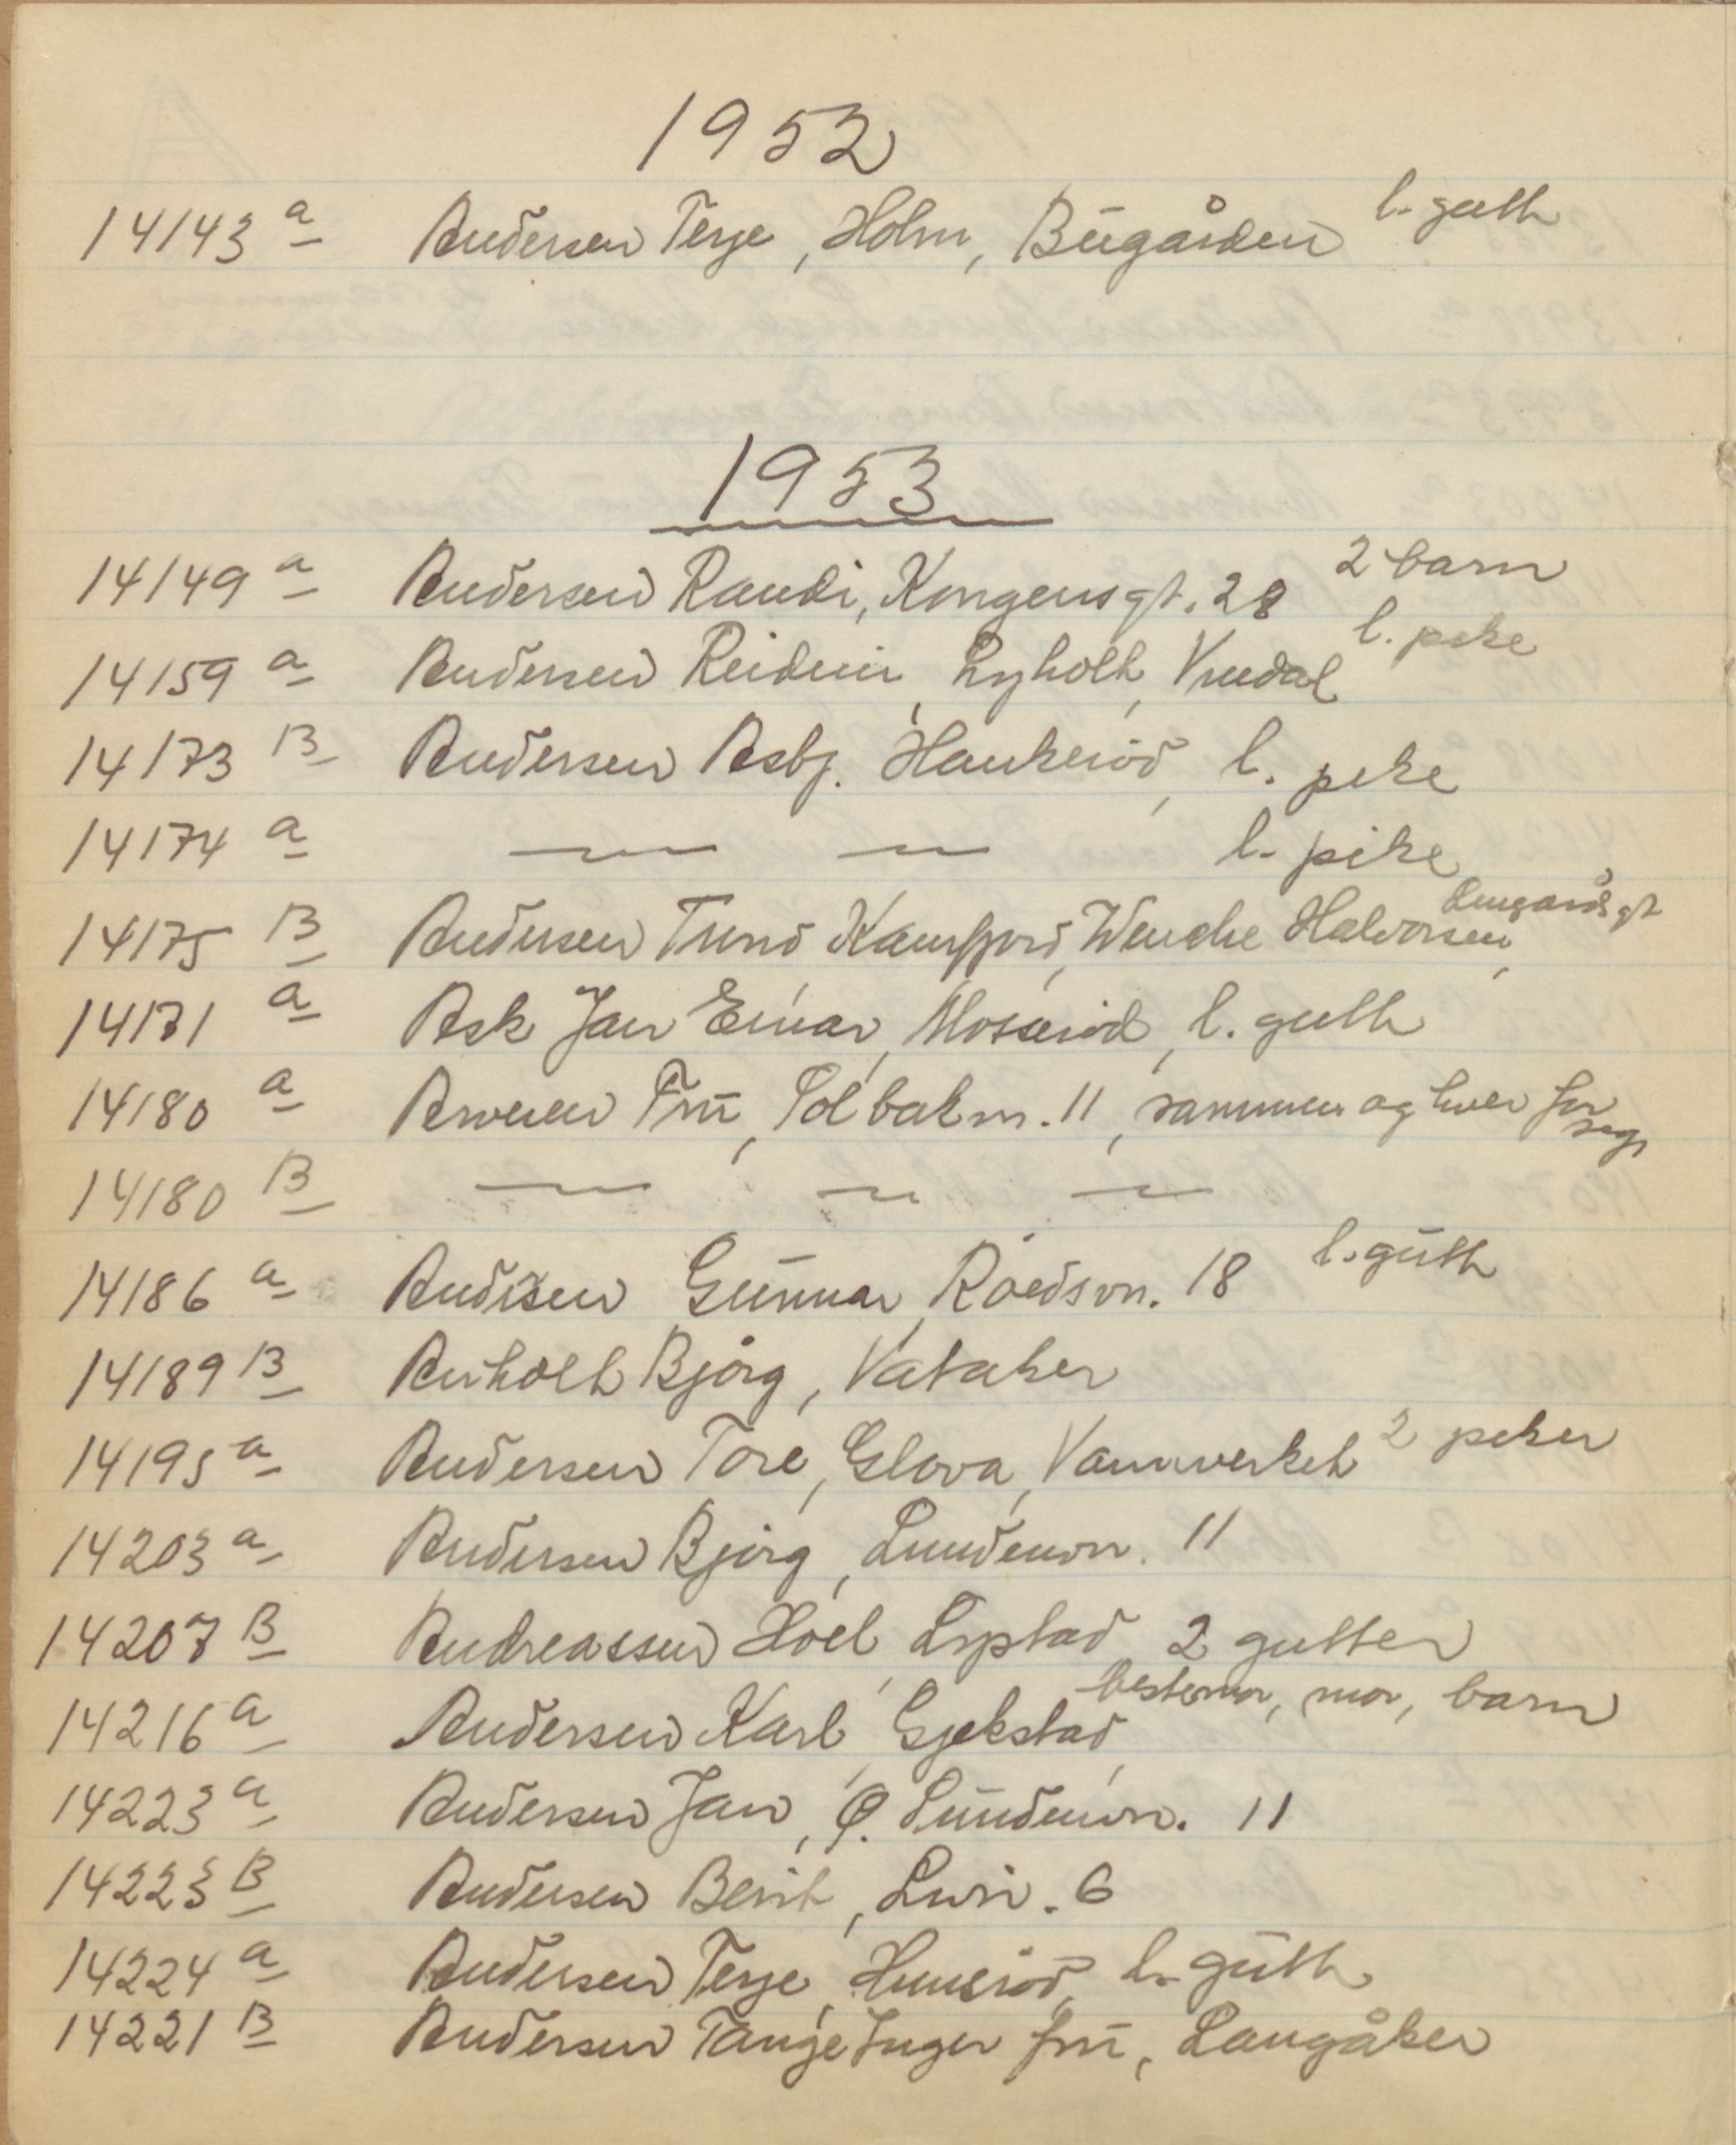 1952
14143 a Andersen Terje, Holm, Bugården l. gutt
1953
14149 a Andersen Randi, Kongensgt. 28 2 barn
14159 a Andersen Reidun, Nyholt, l. pike
14173 B Andersen Asbj. Haukerød, l. pike
14174 a — — l. pike
14175 B Andersen Trond Kamfjord, Wenche Halvorsen, gt
14171 a Ask Jan Einar, Mosserød, l. gutt
14180 a Fru, Solbakm. 11, sammen og hver for seg
14180 B — — —
14186 a Andersen Gunnar, Roedsvn. 18 l. gutt
14189 B Anholt Bjørg, Vataker
14195 a Andersen Tore, Glova, Vannverket 2 piker
14203 a Andersen Bjørg, Lundenvn. 11
14207 B Andreassen Hoel, Lystad 2 gutter
14216 a Andersen Karl, Gjekstad, bestemor, mor, barn
14223 a Andersen Jan, Ø. Lundenvn. 11
14223 B Andersen Berit, 6
14224 a Andersen Terje, Hunsrød, l. gutt
14221 B Andersen Tange Inger fru, Langåker